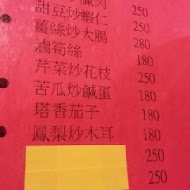 甜豆炒蝦仁 250
薑絲炒大腸 250
滷筍絲 180
芹菜炒花枝 250
苦瓜炒鹹蛋 180
塔香茄子 180
鳳梨炒木耳 180
250
250